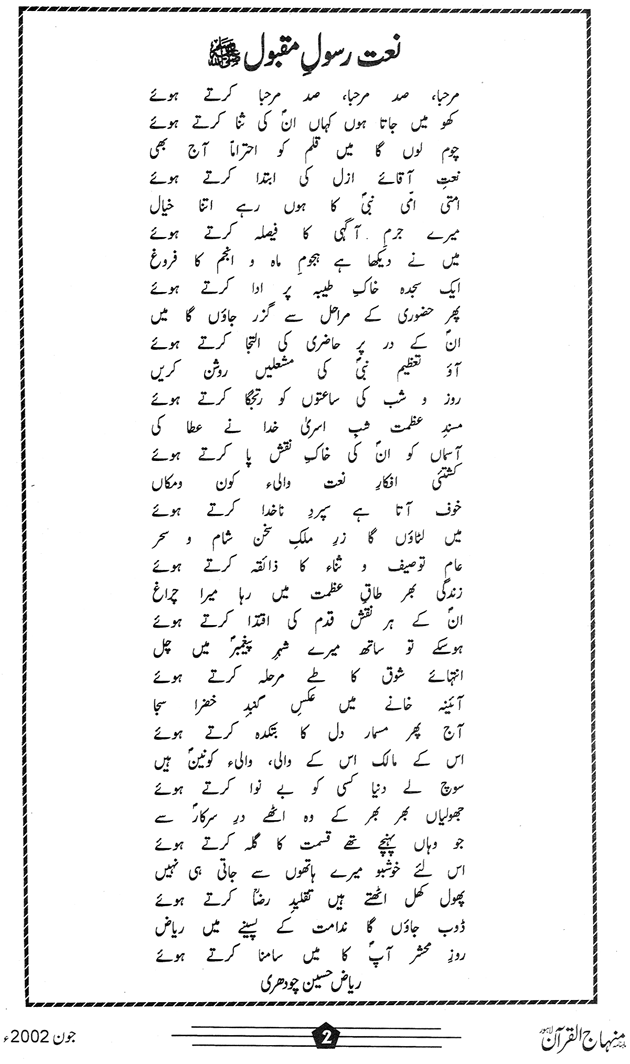 نعت رسولِ مقبول ﷺ
مرحبا، صد مرحبا، صد مرحبا کرتے ہوئے
کھو میں جاتا ہوں کہاں انؐ کی ثنا کرتے ہوئے
چوم لوں گا میں قلم کو احتراماً آج بھی
نعتِ آقائے ازل کی ابتدا کرتے ہوئے
امتی امّی نبیؐ کا ہوں رہے اتنا خیال
میرے جرمِ آگہی کا فیصلہ کرتے ہوئے
میں نے دیکھا ہے ہجومِ ماہ و انجم کا فروغ
ایک سجدہ خاکِ طیبہ پر ادا کرتے ہوئے
پھر حضوری کے مراحل سے گزر جاؤں گا میں
انؐ کے در پر حاضری کی التجا کرتے ہوئے
آؤ تعظیم نبیؐ کی مشعلیں روشن کریں
روز و شب کی ساعتوں کو رتجگا کرتے ہوئے
مسندِ عظمت شبِ اسریٰ خدا نے عطا کی
آسماں کو انؐ کی خاکِ نقش پا کرتے ہوئے
کشتئی افکارِ نعت والیء کون ومکاں
خوف آتا ہے سپردِ ناخدا کرتے ہوئے
میں لٹاؤں گا زرِ ملکِ سخن شام و سحر
عام توصیف و ثناء کا ذائقہ کرتے ہوئے
زندگی بھر طاقِ عظمت میں رہا میرا چراغ
انؐ کے ہر نقش قدم کی اقتدا کرتے ہوئے
ہوسکے تو ساتھ میرے شہرِ پیغمبرؐ میں چل
انتہائے شوق کا طے مرحلہ کرتے ہوئے
آئینہ خانے میں عکسِ گنبدِ خضرا سجا
آج پھر مسمار دل کا بتکدہ کرتے ہوئے
اس کے مالک اس کے والی، والیء کونینؐ ہیں
سوچ لے دنیا کسی کو بے نوا کرتے ہوئے
جھولیاں بھر بھر کے وہ اٹھے درِ سرکارؐ سے
جو وہاں پہنچے تھے قسمت کا گلہ کرتے ہوئے
اس لئے خوشبو میرے ہاتھوں سے جاتی ہی نہیں
پھول کھل اٹھتے ہیں تقلیدِ رضاؒ کرتے ہوئے
ڈوب جاؤں گا ندامت کے پسینے میں ریاض
روزِ محشر آپؐ کا میں سامنا کرتے ہوئے
ریاض حسین چودھری
ماہنامہ منہاج القرآن لاہور
2
جون 2002ء